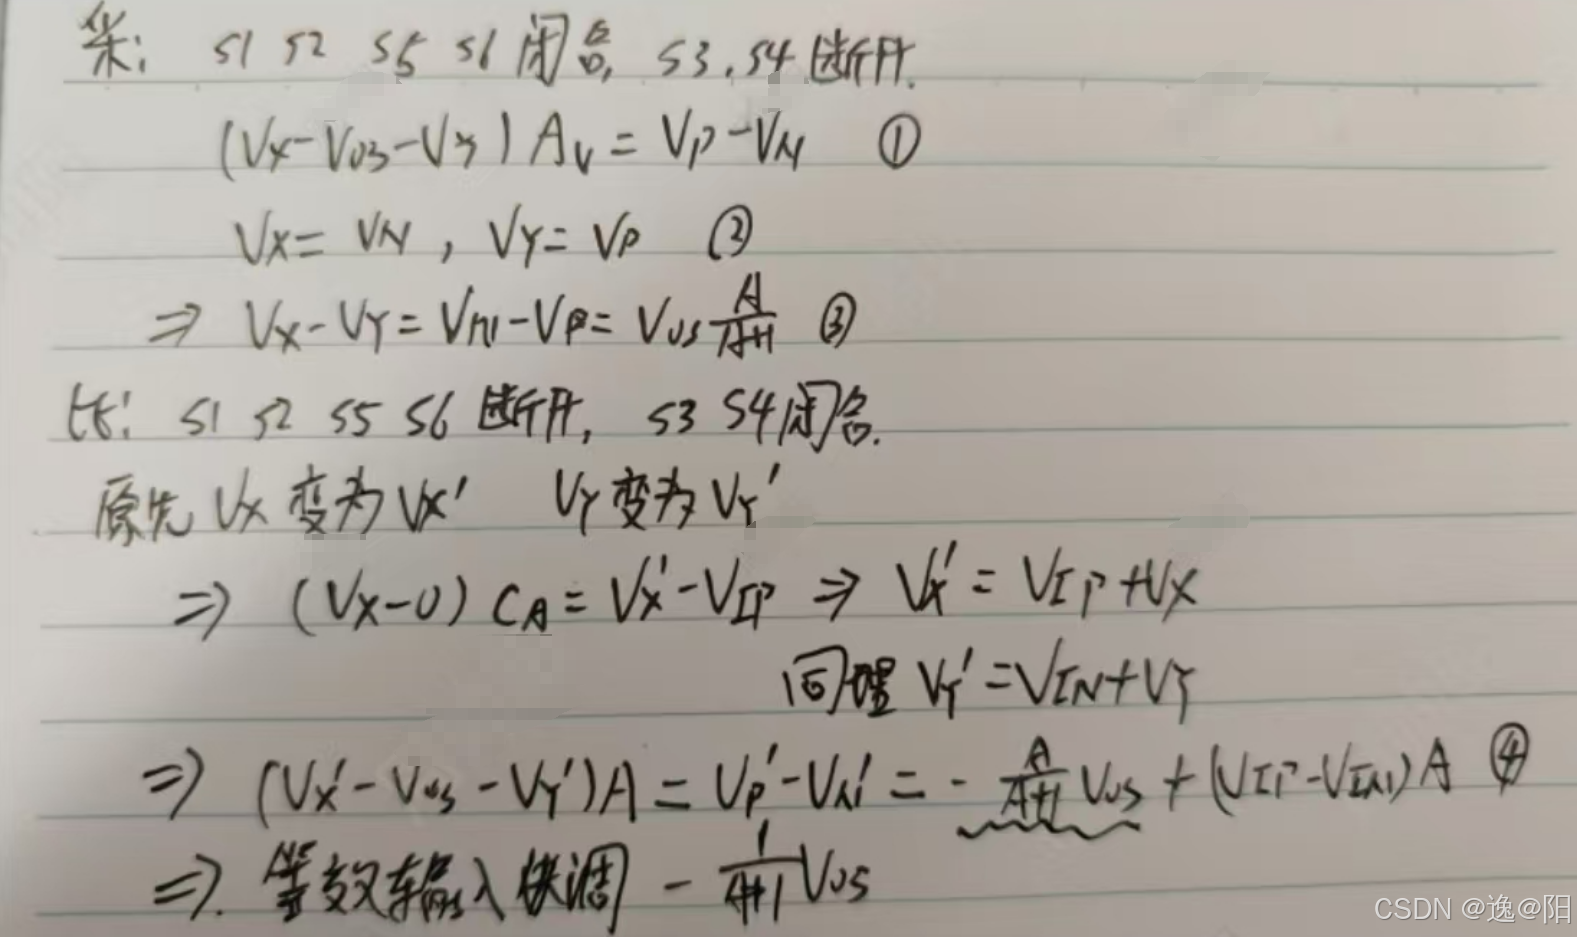 采: S1 S2 S5 S6 闭合, S3, S4 断开.
(VX-VOS-VY) AV = VP-VN ①
VX = VN , VY = VP ②
⇒ VX-VY = VN-VP = VOS A/(A+1) ③
比: S1 S2 S5 S6 断开, S3 S4 闭合.
原先 VX 变为 VX' VY 变为 VY'
⇒ (VX-0) CA = VX'-VIP ⇒ VX' = VIP+VX
同理 VY' = VIN+VY
⇒ (VX'-VOS-VY')A = VP'-VN' = - A/(A+1) VOS + (VIP-VIN)A ④
⇒. 等效输入失调 - 1/(A+1) VOS
CSDN @逸@阳